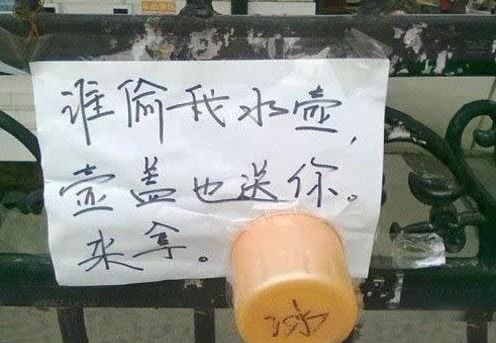 谁偷我水壶,
壶盖也送你。
来拿。